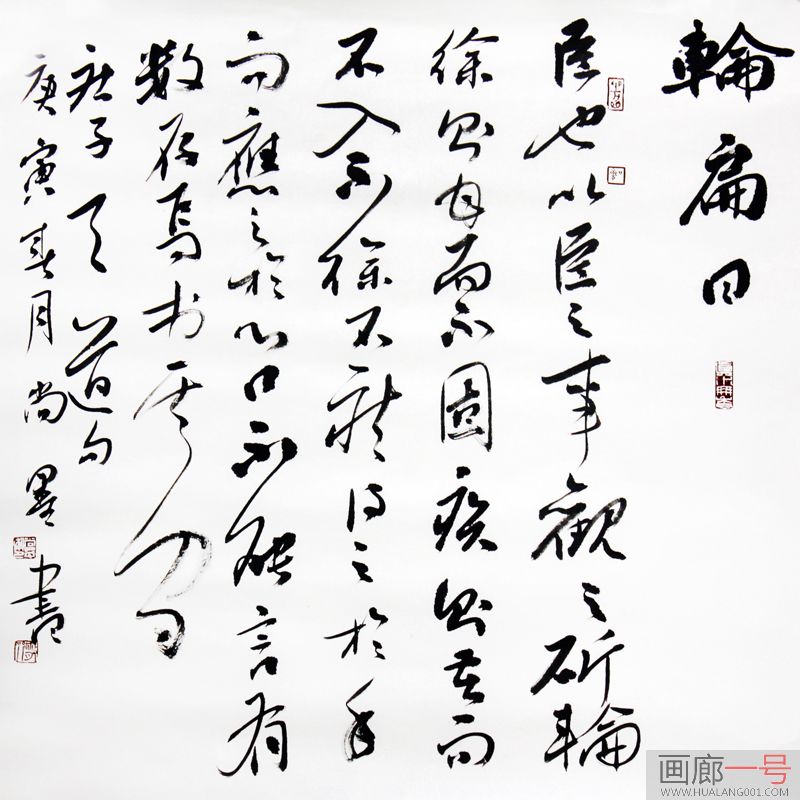 輪扁曰
臣也以臣之事觀之斫輪
徐則甘而不固疾則苦而
不入不徐不疾得之於手
而應之於心口不能言有
數存焉於其間
莊子天道句
庚寅春月尚墨書
画廊一号
WWW.HUALANG001.COM